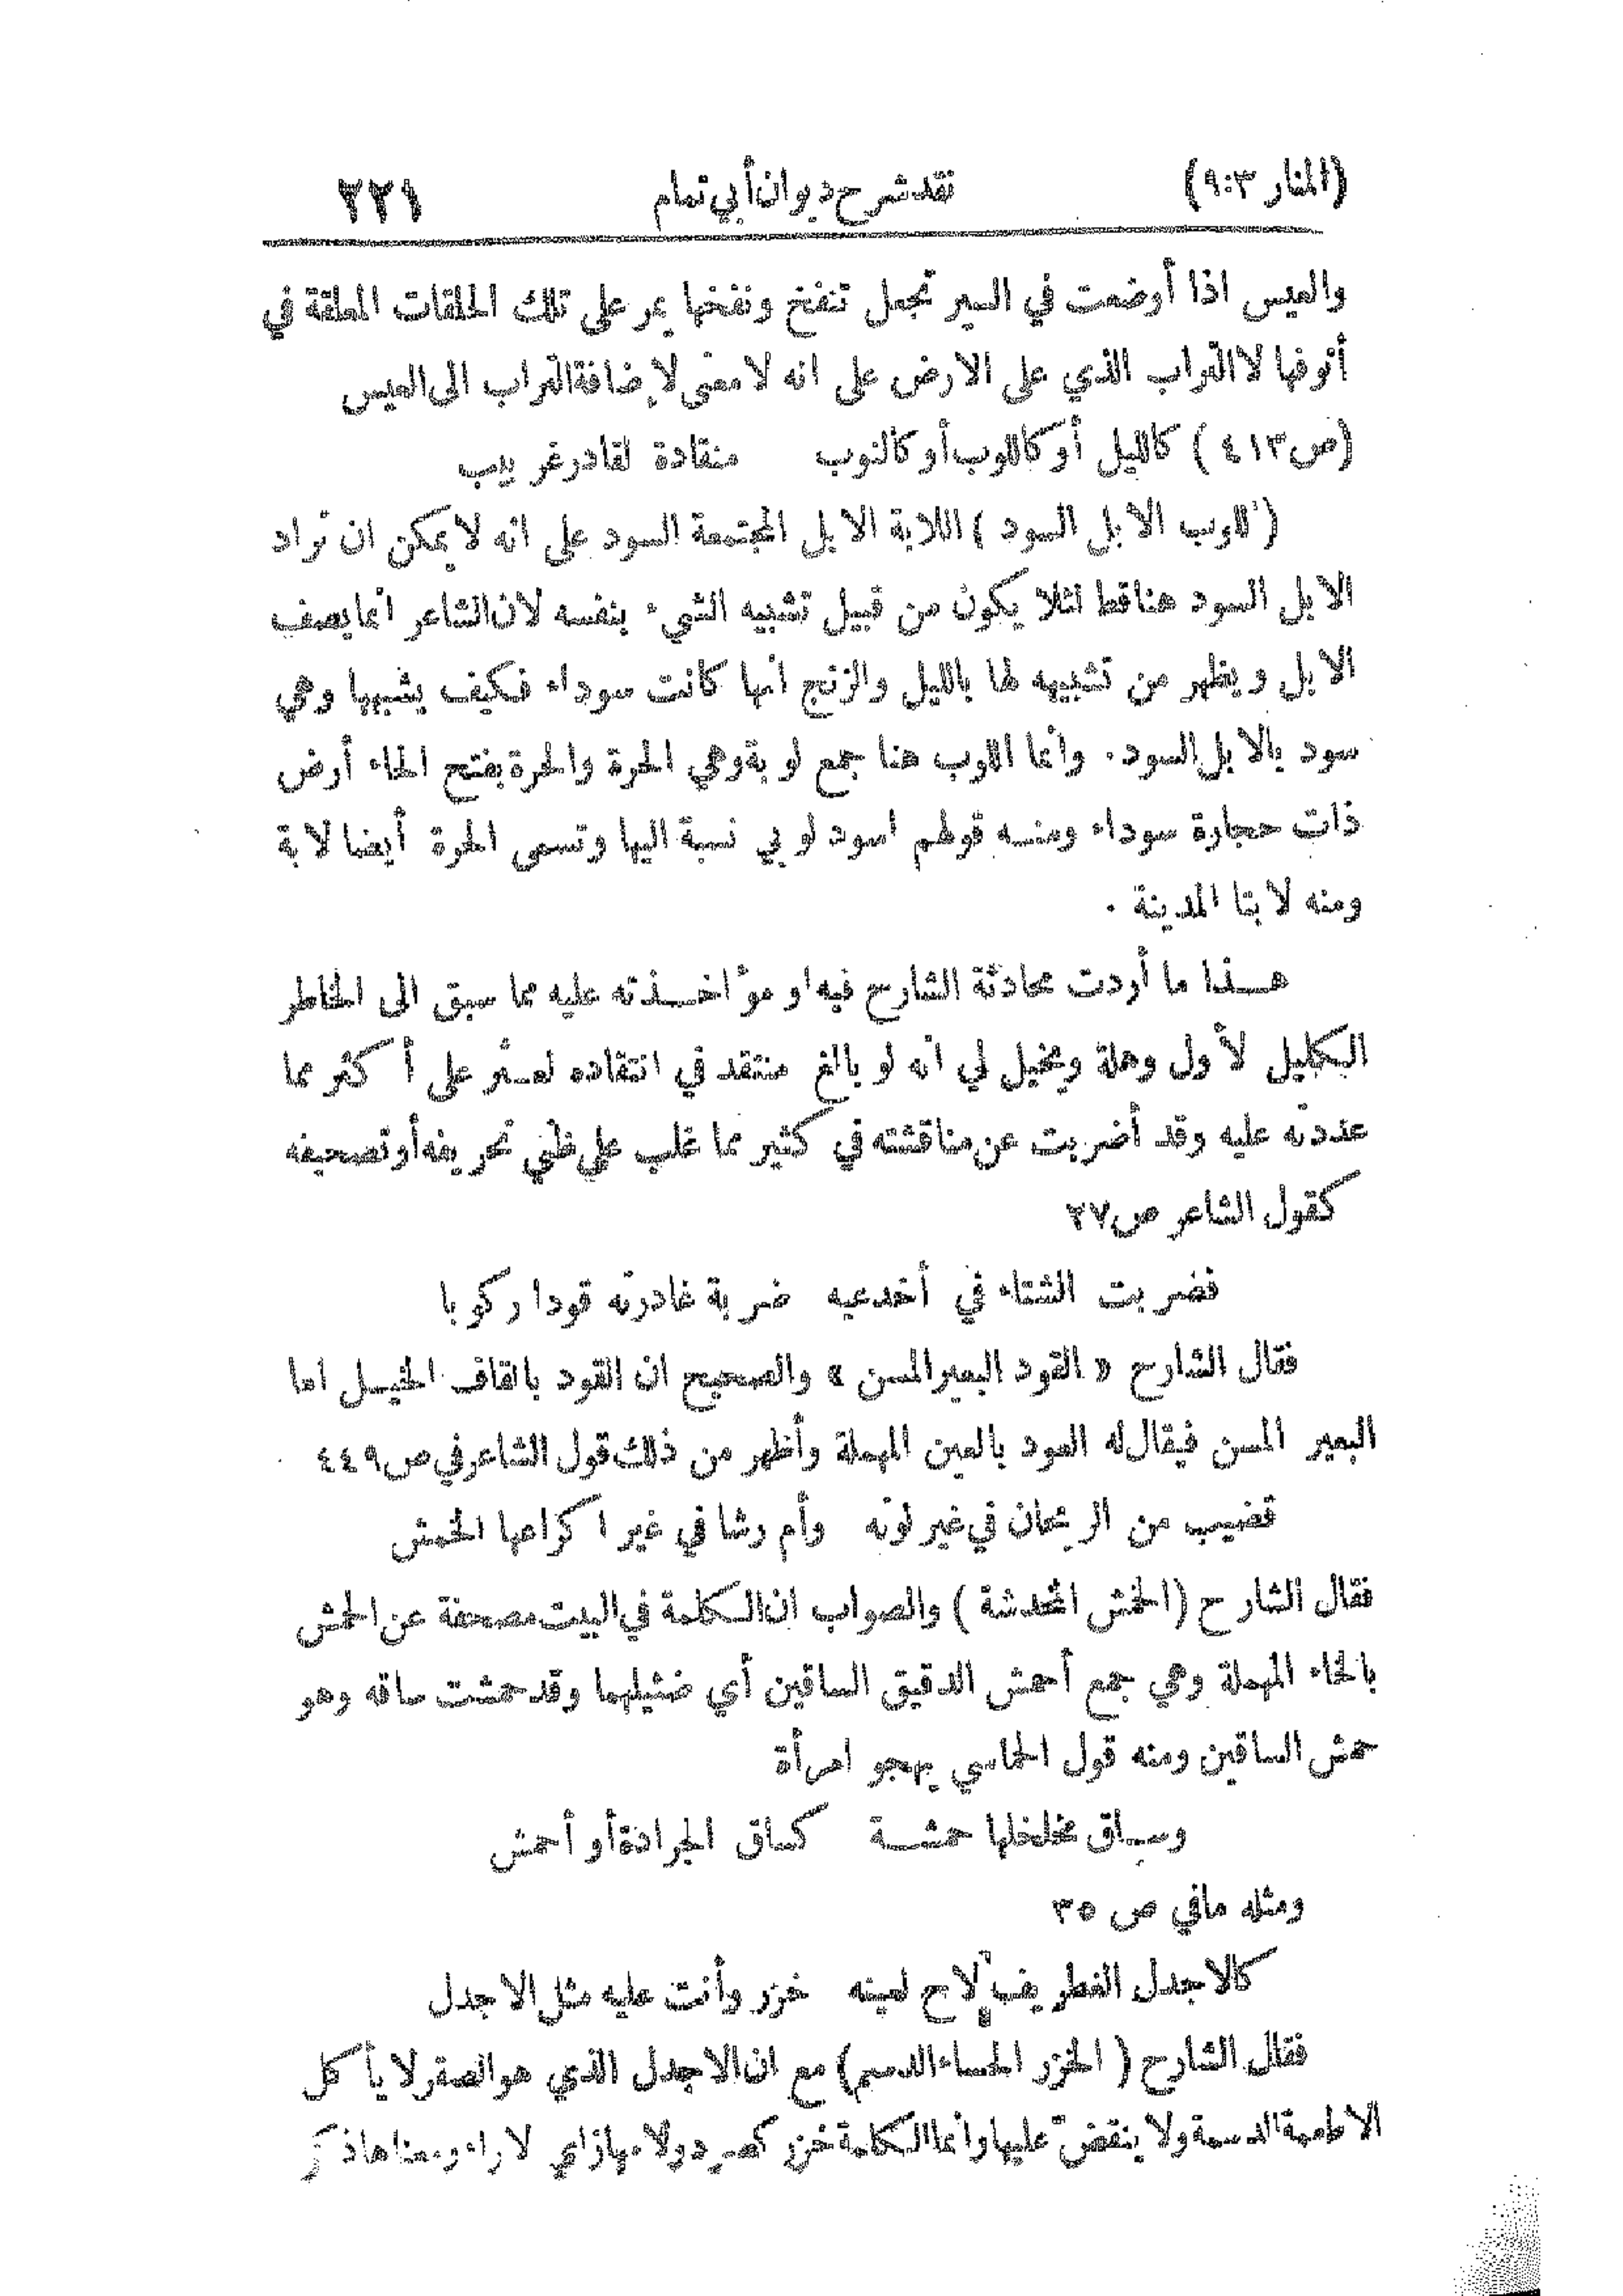 (المنار ٩:٣) نقد شرح ديوان أبي تمام ٢٢١
والعيس اذا أوضعت في السير تجعل تنفخ ونفخها يمر على تلك الحلقات المعلقة في
أنوفها لا التراب الذي على الارض على انه لا معنى لإضافة التراب الى العيس
(ص ٤١٣) كالليل أو كاللوب أو كالنوب منقادة لقادر غربيب
(اللوب الابل السود) اللابة الابل المجتمعة السود على انه لا يمكن ان تراد
الابل السود هنا قط لئلا يكون من قبيل تشبيه الشيء بنفسه لان الشاعر انما يصف
الابل ويظهر من تشبيهه لها بالليل والزنج انها كانت سوداء فكيف يشبهها وهي
سود بالابل السود. وانما اللوب هنا جمع لوبة وهي الحرة والحرة بفتح الحاء أرض
ذات حجارة سوداء ومنه قولهم اسود لوبي نسبة اليها وتسمى الحرة أيضا لابة
ومنه لابتا المدينة .
هذا ما أردت محادثة الشارح فيه او مؤاخذته عليه مما سبق الى الخاطر
الكليل لأول وهلة ويخيل لي انه لو بالغ منتقد في انتقاده لعثر على أكثر مما
عددته عليه وقد أضربت عن مناقشته في كثير مما غلب على ظني تحريفه أو تصحيفه
كقول الشاعر ص ٢٧
فضربت الشتاء في أخدعيه ضربة غادرته قودا ركوبا
فقال الشارح « القود البعير المسن » والصحيح ان القود بالقاف الخيل اما
البعير المسن فيقال له العود بالعين المهملة وأظهر من ذلك قول الشاعر في ص ٤٤٩
قضيب من الريحان في غير لونه وأم رشا في غير اكراعها الخمش
فقال الشارح (الخمش المخدشة) والصواب ان الكلمة في البيت مصحفة عن الحمش
بالحاء المهملة وهي جمع أحمش الدقيق الساقين أي ضئيلهما وقد حمشت ساقه وهو
حمش الساقين ومنه قول الحماسي يهجو امرأة
وساق مخلخلها حمشة كساق الجرادة أو أحمش
ومثله ما في ص ٣٥
كالاجدل الغطريف لاح لعينه خزر وأنت عليه مثل الاجدل
فقال الشارح (الخزر الحساء الدسم) مع ان الاجدل الذي هو الصقر لا يأكل
الاطعمة الدسمة ولا ينقض عليها وانما الكلمة خزز كصرد ولامها زاي لا راء ومعناها ذكر